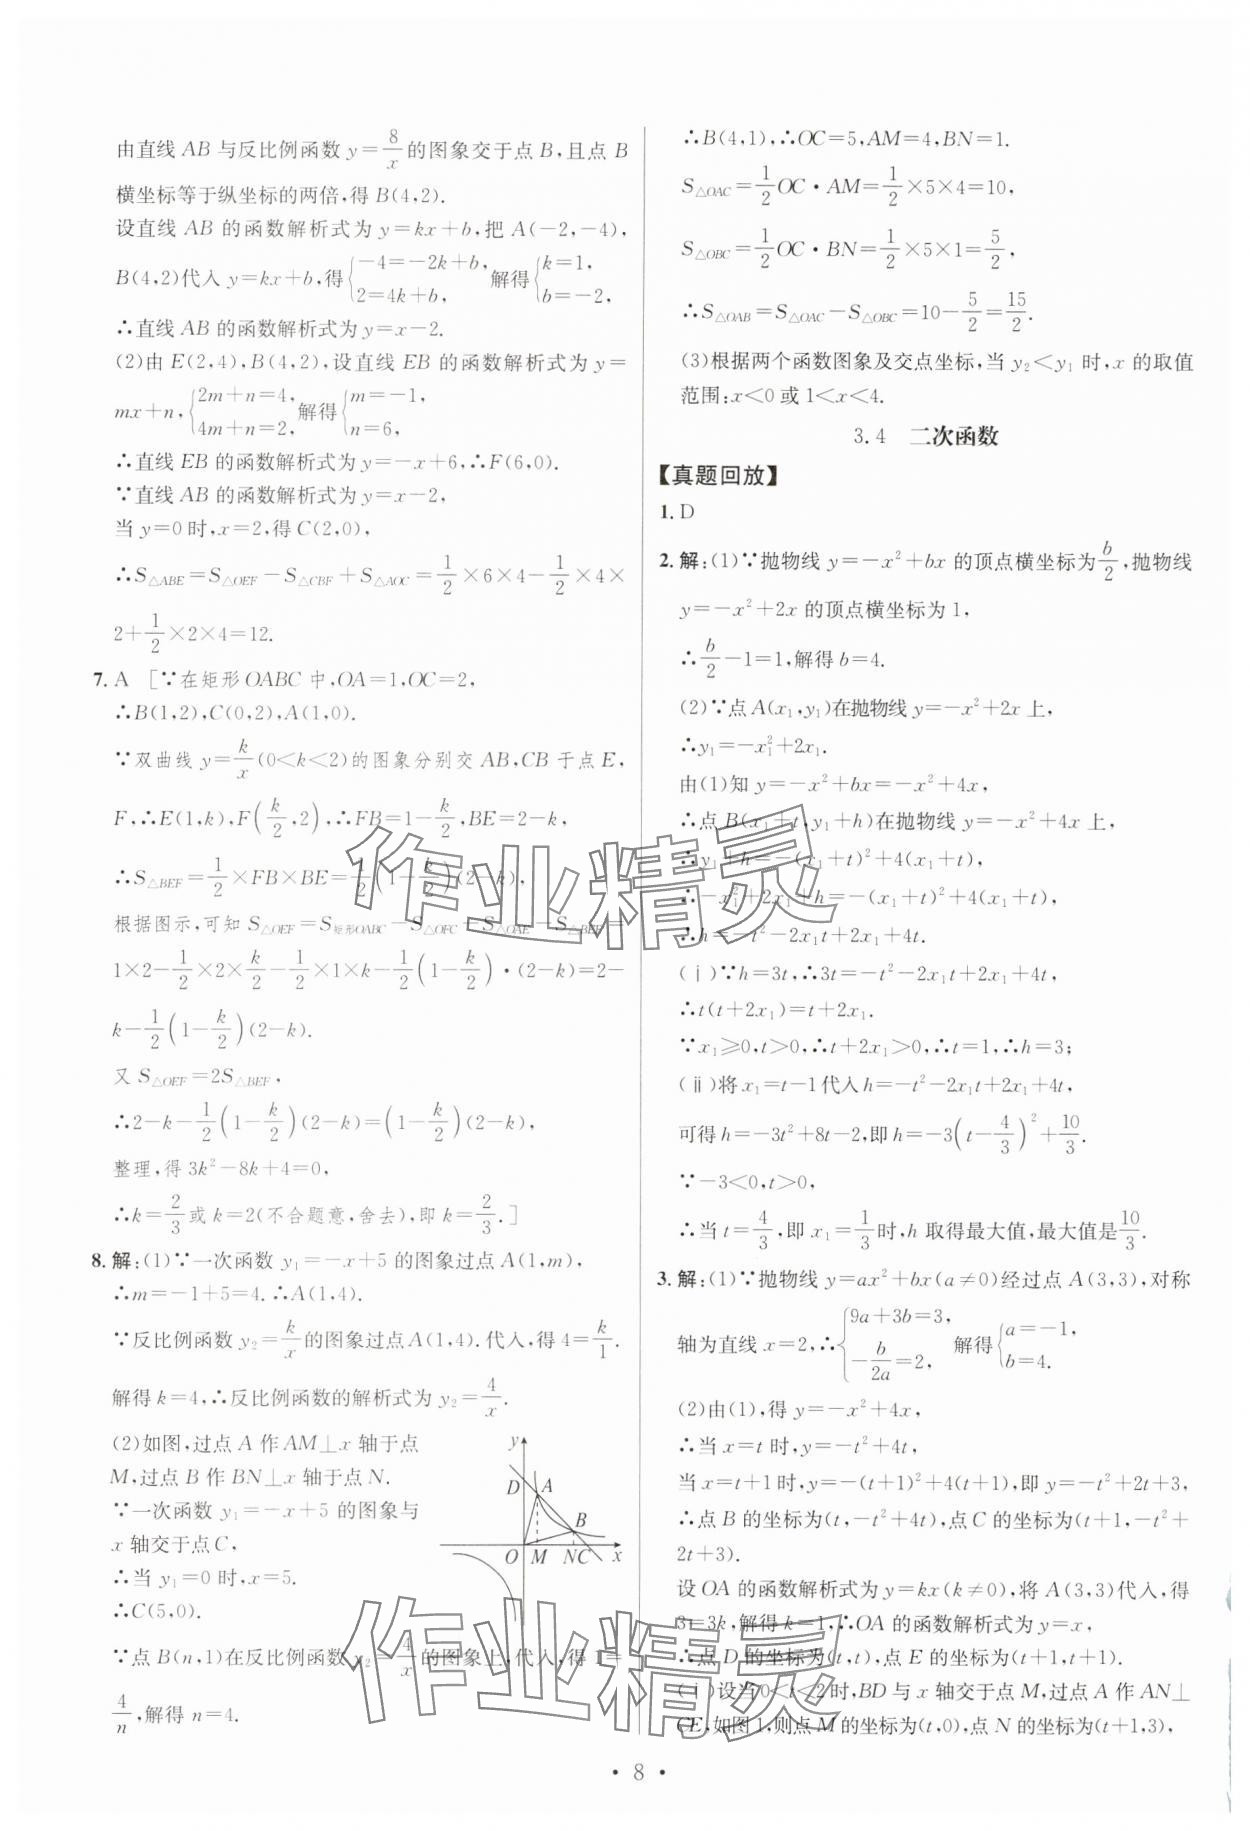 由直线 AB 与反比例函数 y=8/x 的图象交于点 B,且点 B
横坐标等于纵坐标的两倍,得 B(4,2).
设直线 AB 的函数解析式为 y=kx+b,把 A(-2,-4),
B(4,2)代入 y=kx+b,得{-4=-2k+b, 2=4k+b, 解得{k=1, b=-2,
∴直线 AB 的函数解析式为 y=x-2.
(2)由 E(2,4),B(4,2),设直线 EB 的函数解析式为 y=
mx+n,{2m+n=4, 4m+n=2, 解得{m=-1, n=6,
∴直线 EB 的函数解析式为 y=-x+6,∴F(6,0).
∵直线 AB 的函数解析式为 y=x-2,
当 y=0 时,x=2,得 C(2,0),
∴S△ABE=S△OEF-S△CBF+S△AOC=1/2×6×4-1/2×4×
2+1/2×2×4=12.
7. A [∵在矩形 OABC 中,OA=1,OC=2,
∴B(1,2),C(0,2),A(1,0).
∵双曲线 y=k/x(0<k<2)的图象分别交 AB,CB 于点 E,
F,∴E(1,k),F(k/2,2),∴FB=1-k/2,BE=2-k,
∴S△BEF=1/2×FB×BE=1/2(1-k/2)(2-k),
根据图示,可知 S△OEF=S矩形OABC-S△OFC-S△OAE-S△BEF=
1×2-1/2×2×k/2-1/2×1×k-1/2(1-k/2)·(2-k)=2-
k-1/2(1-k/2)(2-k).
又 S△OEF=2S△BEF,
∴2-k-1/2(1-k/2)(2-k)=(1-k/2)(2-k),
整理,得 3k²-8k+4=0,
∴k=2/3或 k=2(不合题意,舍去),即 k=2/3.]
8. 解:(1)∵一次函数 y₁=-x+5 的图象过点 A(1,m),
∴m=-1+5=4.∴A(1,4).
∵反比例函数 y₂=k/x的图象过点 A(1,4).代入,得 4=k/1.
解得 k=4,∴反比例函数的解析式为 y₂=4/x.
(2)如图,过点 A 作 AM⊥x 轴于点
M,过点 B 作 BN⊥x 轴于点 N.
∵一次函数 y₁=-x+5 的图象与
x 轴交于点 C,
∴当 y₁=0 时,x=5.
∴C(5,0).
y
D A
B
O M NC x
∵点 B(n,1)在反比例函数 y₂=4/x的图象上,代入,得 1=
4/n,解得 n=4.
∴B(4,1),∴OC=5,AM=4,BN=1.
S△OAC=1/2OC·AM=1/2×5×4=10,
S△OBC=1/2OC·BN=1/2×5×1=5/2,
∴S△OAB=S△OAC-S△OBC=10-5/2=15/2.
(3)根据两个函数图象及交点坐标,当 y₂<y₁ 时,x 的取值
范围:x<0 或 1<x<4.
3.4 二次函数
【真题回放】
1. D
2. 解:(1)∵抛物线 y=-x²+bx 的顶点横坐标为b/2,抛物线
y=-x²+2x 的顶点横坐标为 1,
∴b/2-1=1,解得 b=4.
(2)∵点 A(x₁,y₁)在抛物线 y=-x²+2x 上,
∴y₁=-x₁²+2x₁.
由(1)知 y=-x²+bx=-x²+4x,
∴点 B(x₁+t,y₁+h)在抛物线 y=-x²+4x 上,
∴y₁+h=-(x₁+t)²+4(x₁+t),
∴-x₁²+2x₁+h=-(x₁+t)²+4(x₁+t),
∴h=-t²-2x₁t+2x₁+4t.
(ⅰ)∵h=3t,∴3t=-t²-2x₁t+2x₁+4t,
∴t(t+2x₁)=t+2x₁.
∵x₁≥0,t>0,∴t+2x₁>0,∴t=1,∴h=3;
(ⅱ)将 x₁=t-1代入 h=-t²-2x₁t+2x₁+4t,
可得 h=-3t²+8t-2,即 h=-3(t-4/3)²+10/3.
∵-3<0,t>0,
∴当 t=4/3,即 x₁=1/3时,h 取得最大值,最大值是10/3.
3. 解:(1)∵抛物线 y=ax²+bx(a≠0)经过点 A(3,3),对称
轴为直线 x=2,∴{9a+3b=3, -b/2a=2, 解得{a=-1, b=4.
(2)由(1),得 y=-x²+4x,
∴当 x=t 时,y=-t²+4t,
当 x=t+1 时,y=-(t+1)²+4(t+1),即 y=-t²+2t+3,
∴点 B 的坐标为(t,-t²+4t),点 C 的坐标为(t+1,-t²+
2t+3).
设 OA 的函数解析式为 y=kx(k≠0),将 A(3,3)代入,得
3=3k,解得 k=1,∴OA 的函数解析式为 y=x,
∴点 D 的坐标为(t,t),点 E 的坐标为(t+1,t+1).
(ⅰ)设当0<t<2时,BD 与 x 轴交于点 M,过点 A 作 AN⊥
CE,如图1,则点 M 的坐标为(t,0),点 N 的坐标为(t+1,3),
· 8 ·
作业精灵
作业精灵